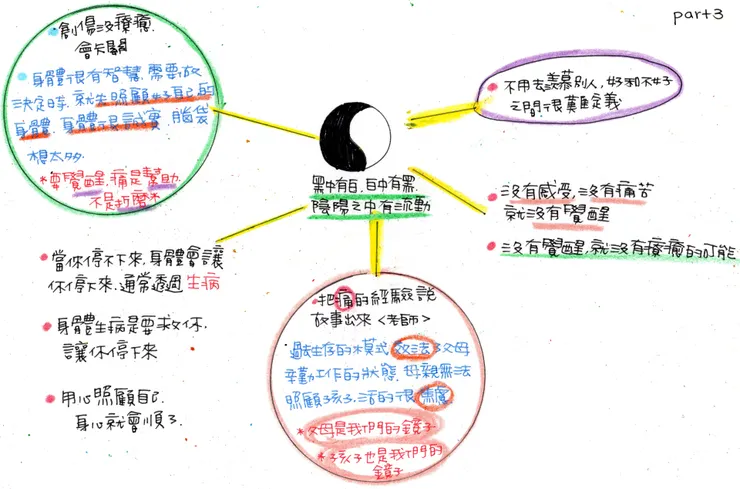 part3
創傷沒療癒,
會卡關
身體很有智慧,需要做
決定時,就先照顧好自己的
身體,身體很誠實,腦袋
想太多.
*要覺醒,痛是幫助,
不是折磨*
黑中有白,白中有黑,
陰陽之中有流動
不用去羨慕別人,好和不好
之間,很難定義
沒有感受,沒有痛苦
就沒有覺醒
沒有覺醒,就沒有療癒的可能
當你停不下來,身體會讓
你停下來,通常透過生病
身體生病是要救你,
讓你停下來
用心照顧自己,
身心就會順了.
把痛的經驗說
故事出來<老師>
過去生存的模式,效法了父母
辛勤工作的狀態,母親無法
照顧孩子,活的很焦慮
*父母是我們的鏡子
*孩子也是我們的
鏡子